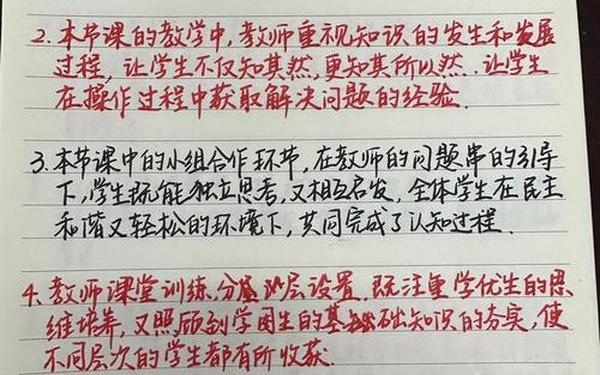 2.本节课的教学中,教师重视知识的发生和发展
过程,让学生不仅知其然,更知其所以然.让学生
在操作过程中获取解决问题的经验.
3.本节课中的小组合作环节,在教师的问题串的引导
下,学生既能独立思考,又相互启发,全体学生在民主
和谐又轻松的环境下,共同完成了认知过程.
4.教师课堂训练,分层设置.既注重学优生的思
维培养,又照顾到学困生的基础知识的夯实,使
不同层次的学生都有所收获.